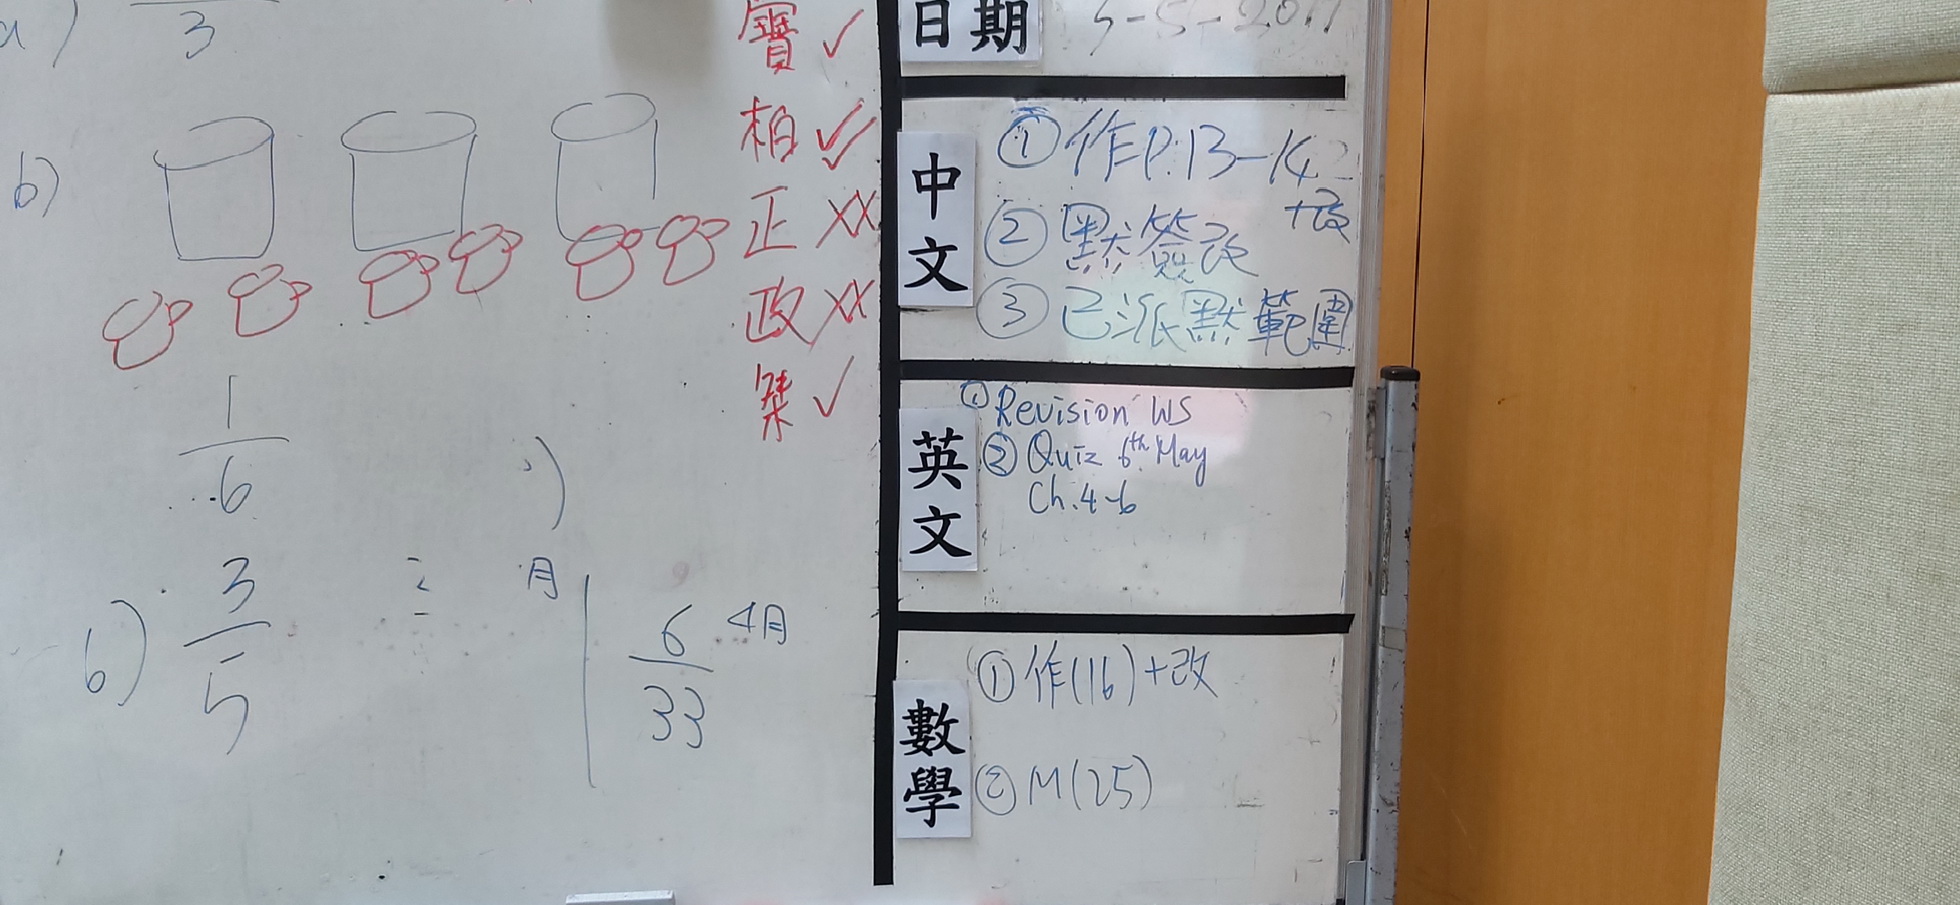 a)
3
b)
1
6
6)
3
5
月
6
33
4月
寶 ✓
柏 ✓✓
正 XX
政 XX
桀 ✓
日期
中文
① 作P.13-14
+改
② 默簽改
③ 已派默範圍
英文
① Revision WS
② Quiz 6th May
Ch.4-6
數學
① 作(16)+改
② M(25)